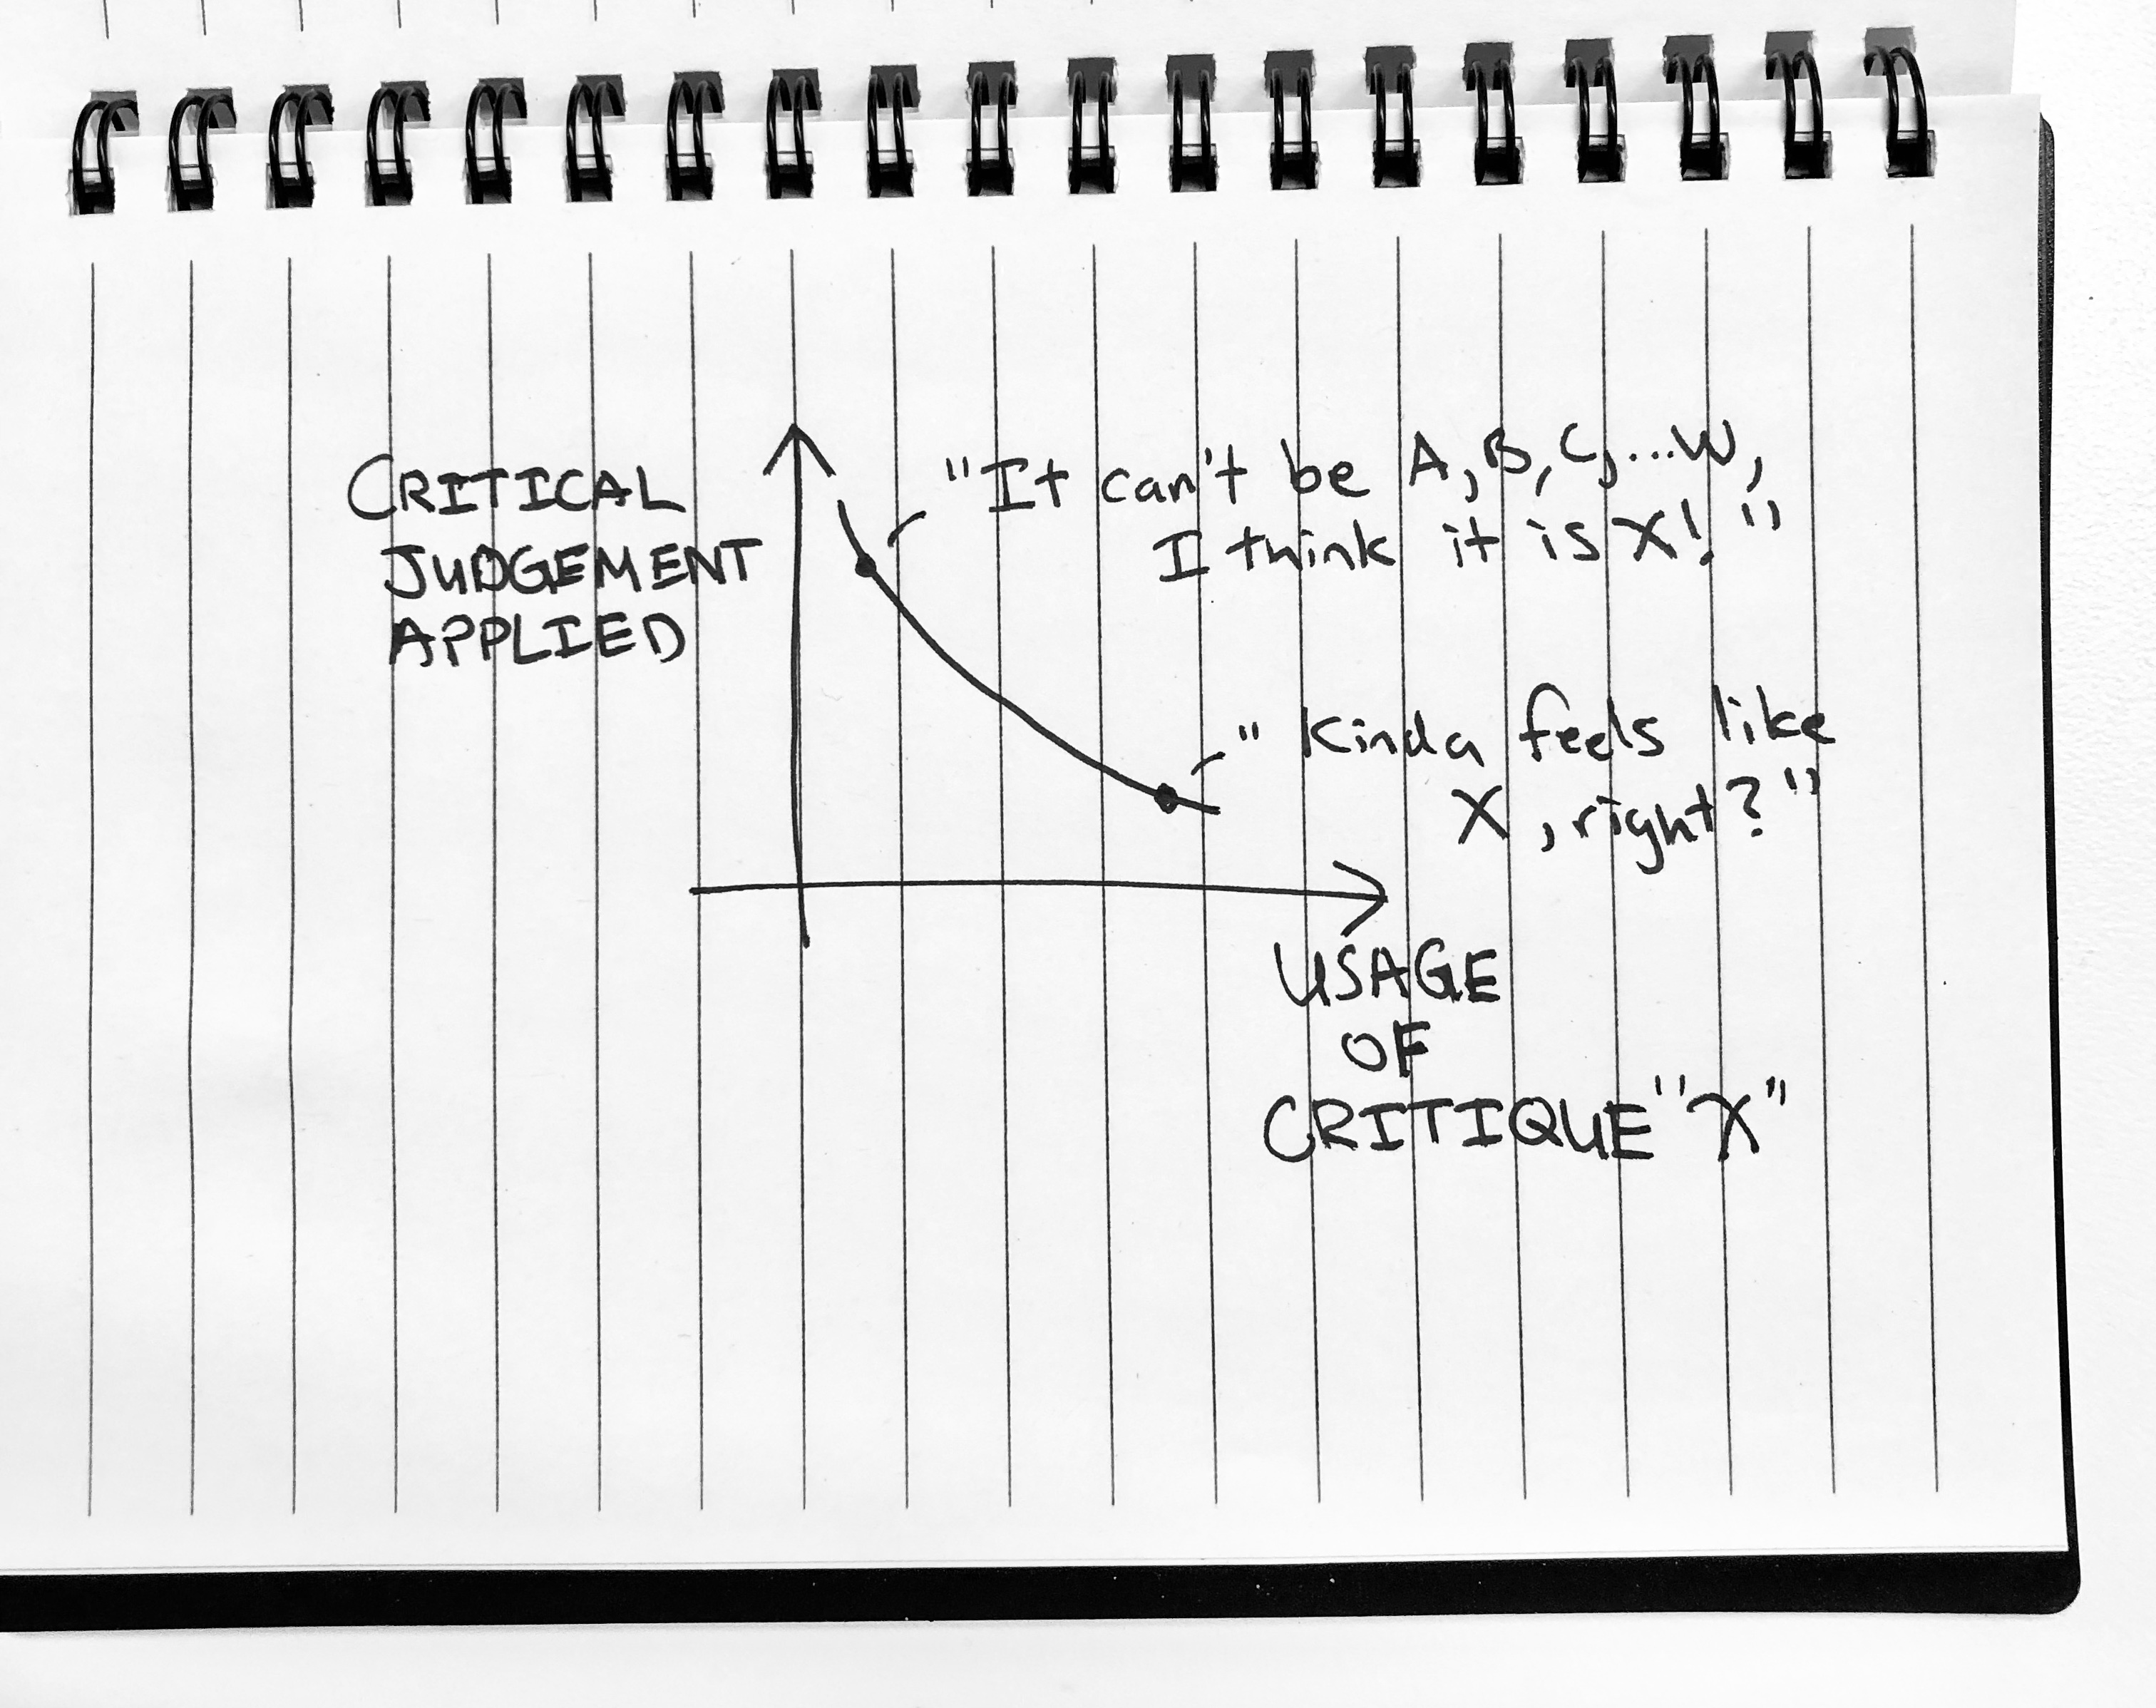 CRITICAL
JUDGEMENT
APPLIED
"It can't be A, B, C, ...W,
I think it is X! "
" Kinda feels like
X , right? "
USAGE
OF
CRITIQUE "X"